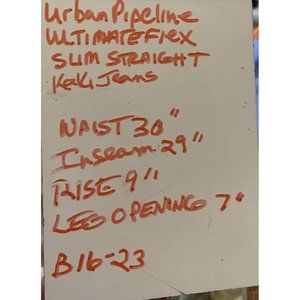 Urban Pipeline
ULTIMATE Flex
SLIM STRAIGHT
Kaki Jeans
WAIST 30"
Inseam 29"
RISE 9"
LEG OPENING 7"
B16-23